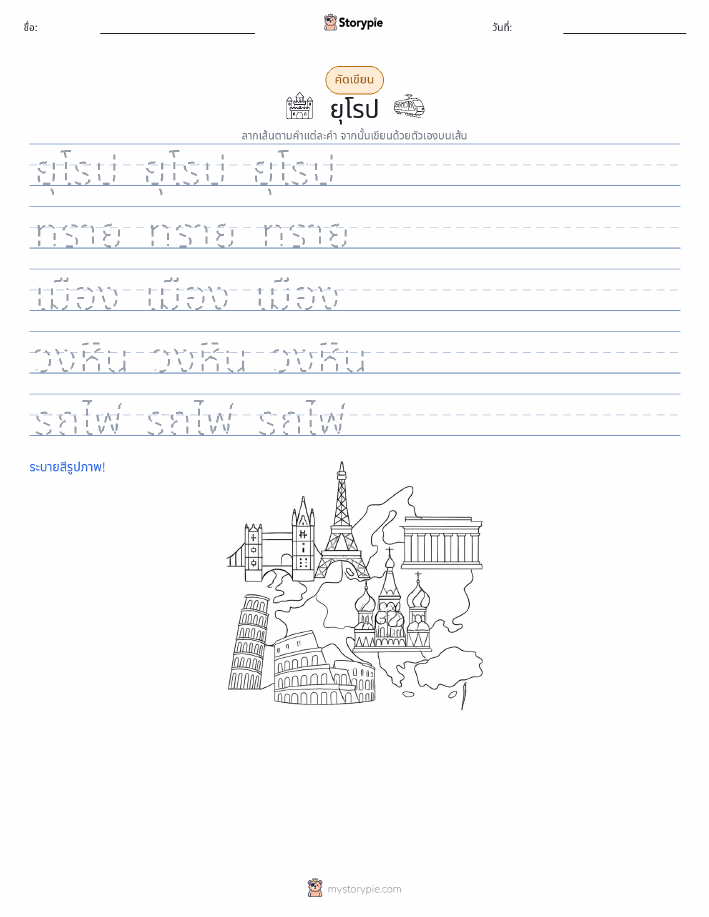 ชื่อ:
Storypie
วันที่:
คัดเขียน
ยุโรป
ลากเส้นตามคำแต่ละคำ จากนั้นเขียนด้วยตัวเองบนเส้น
ยุโรป ยุโรป ยุโรป
ทราย ทราย ทราย
เมือง เมือง เมือง
วงหิน วงหิน วงหิน
รถไฟ รถไฟ รถไฟ
ระบายสีรูปภาพ!
mystorypie.com